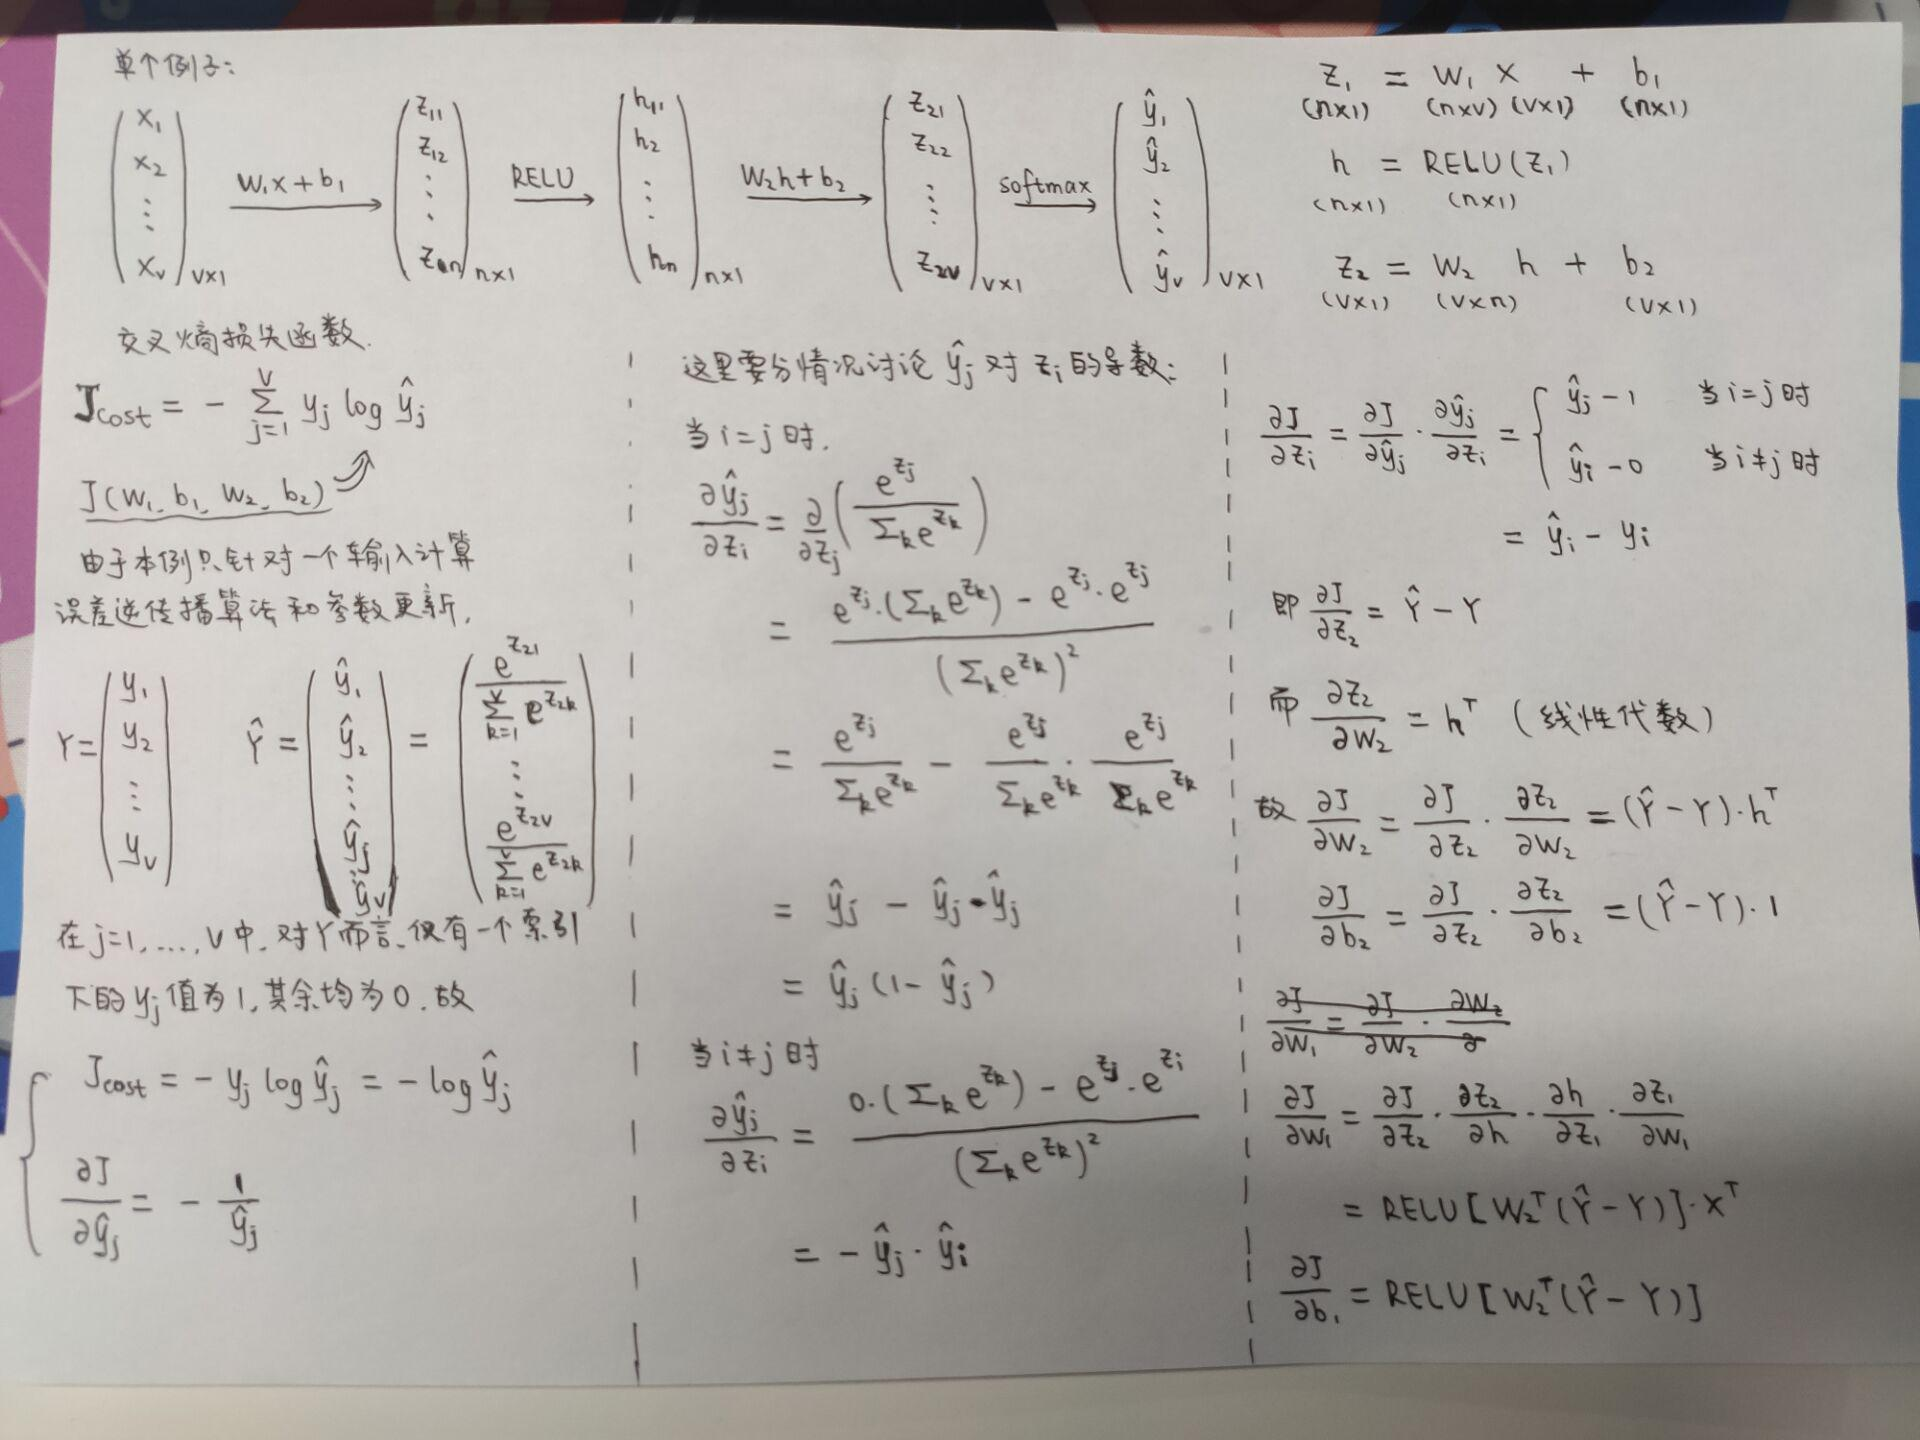 单个例子:
(x₁ x₂ ⋮ xᵥ)ᵥₓ₁ —W₁x+b₁→ (z₁₁ z₁₂ ⋮ z₁ₙ)ₙₓ₁ —RELU→ (h₁₁ h₂ ⋮ hₙ)ₙₓ₁ —W₂h+b₂→ (z₂₁ z₂₂ ⋮ z₂ᵥ)ᵥₓ₁ —softmax→ (ŷ₁ ŷ₂ ⋮ ŷᵥ)ᵥₓ₁
z₁ = W₁ x + b₁
(n×1) (n×v) (v×1) (n×1)
h = RELU(z₁)
(n×1) (n×1)
z₂ = W₂ h + b₂
(v×1) (v×n) (v×1)
交叉熵损失函数.
J_cost = - Σ_{j=1}^{V} yⱼ log ŷⱼ
J(W₁、b₁、W₂、b₂)
由于本例只针对一个输入计算
误差逆传播算法和参数更新,
Y = (y₁ y₂ ⋮ yᵥ) Ŷ = (ŷ₁ ŷ₂ ⋮ ŷⱼ ⋮ ŷᵥ) = (e^{z₂₁}/Σ_{k=1}^{V} e^{z₂ₖ} ⋮ e^{z₂ᵥ}/Σ_{k=1}^{V} e^{z₂ₖ})
在j=1,…,V中,对Y而言、仅有一个索引
下的yⱼ值为1,其余均为0.故
J_cost = - yⱼ log ŷⱼ = - log ŷⱼ
∂J/∂ŷⱼ = - 1/ŷⱼ
这里要分情况讨论 ŷⱼ 对 zᵢ 的导数:
当 i=j 时.
∂ŷⱼ/∂zᵢ = ∂/∂zⱼ (e^{zⱼ}/Σₖe^{zₖ})
= (e^{zⱼ}·(Σₖe^{zₖ}) - e^{zⱼ}·e^{zⱼ})/(Σₖe^{zₖ})²
= e^{zⱼ}/Σₖe^{zₖ} - e^{zⱼ}/Σₖe^{zₖ} · e^{zⱼ}/Σₖe^{zₖ}
= ŷⱼ - ŷⱼ·ŷⱼ
= ŷⱼ(1-ŷⱼ)
当 i≠j 时
∂ŷⱼ/∂zᵢ = (0·(Σₖe^{zₖ}) - e^{zⱼ}·e^{zᵢ})/(Σₖe^{zₖ})²
= -ŷⱼ·ŷᵢ
∂J/∂zᵢ = ∂J/∂ŷⱼ · ∂ŷⱼ/∂zᵢ = { ŷⱼ-1 当i=j时
ŷᵢ-0 当i≠j时
= ŷᵢ - yᵢ
即 ∂J/∂z₂ = Ŷ - Y
而 ∂z₂/∂W₂ = hᵀ (线性代数)
故 ∂J/∂W₂ = ∂J/∂z₂ · ∂z₂/∂W₂ = (Ŷ-Y)·hᵀ
∂J/∂b₂ = ∂J/∂z₂ · ∂z₂/∂b₂ = (Ŷ-Y)·1
∂J/∂W₁ = ∂J/∂W₂ · ∂W₂/∂
∂J/∂W₁ = ∂J/∂z₂ · ∂z₂/∂h · ∂h/∂z₁ · ∂z₁/∂W₁
= RELU[W₂ᵀ(Ŷ-Y)]·xᵀ
∂J/∂b₁ = RELU[W₂ᵀ(Ŷ-Y)]